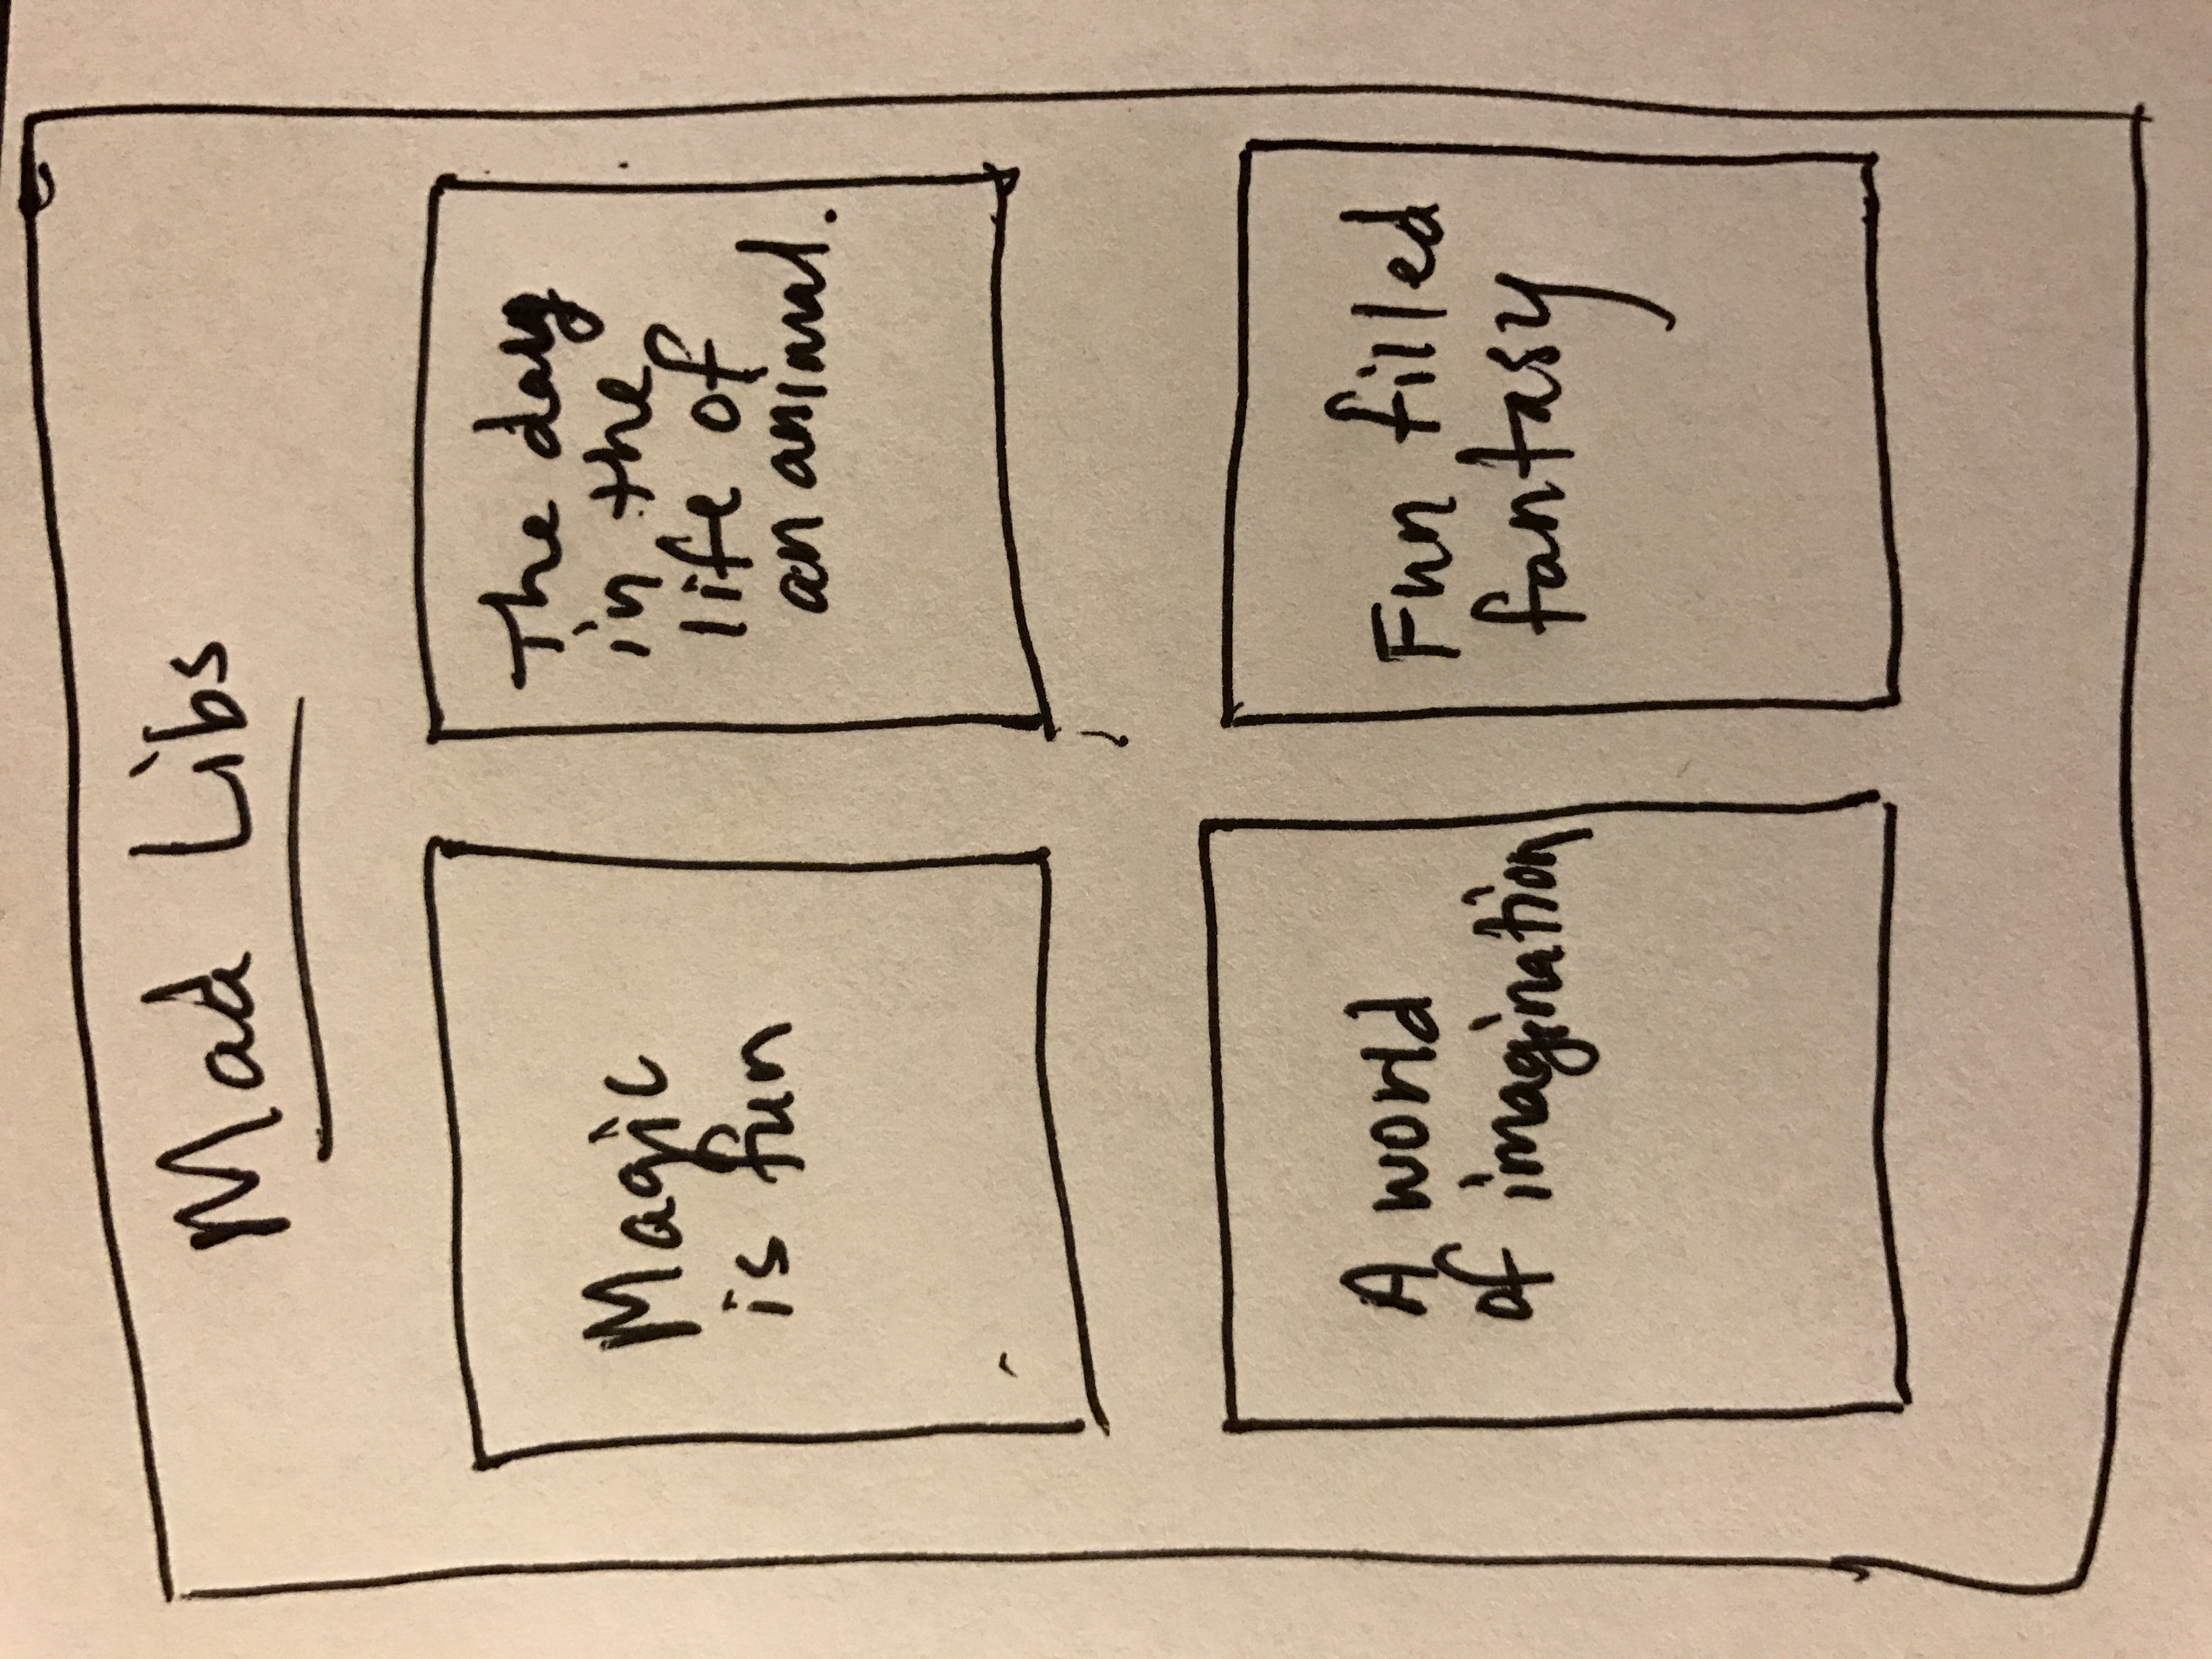 Mad Libs
Magic
is fun
The day
in the
life of
an animal.
A world
of imagination
Fun filled
fantasy